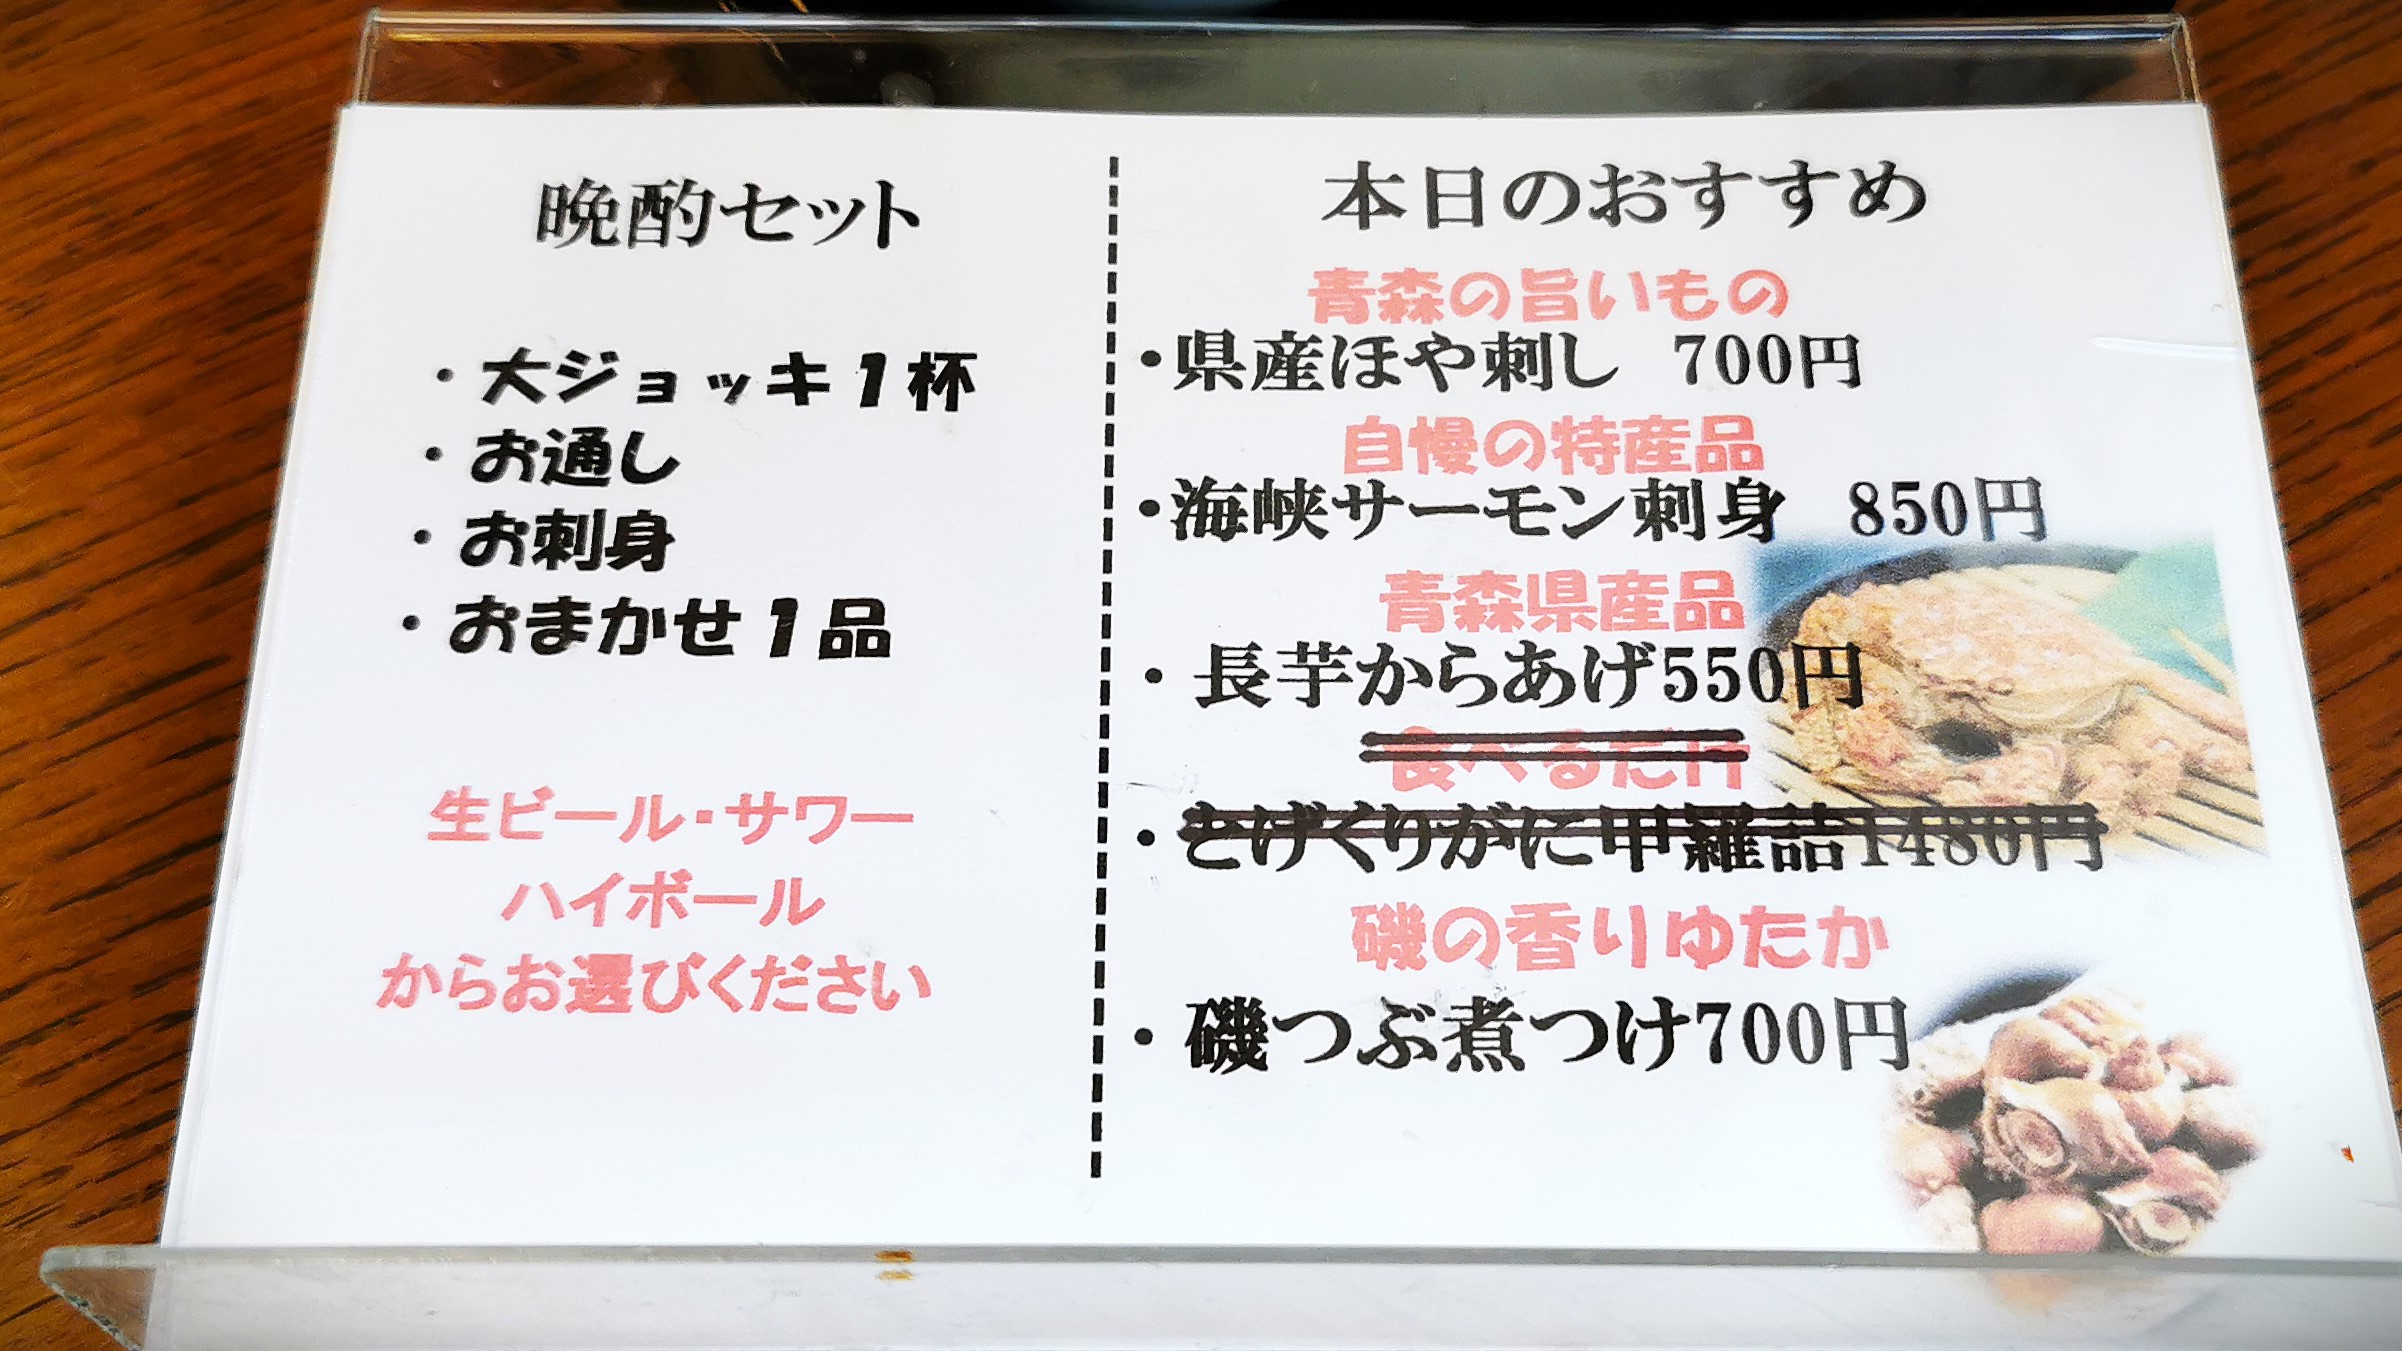 晩酌セット
・大ジョッキ1杯
・お通し
・お刺身
・おまかせ1品
生ビール・サワー
ハイボール
からお選びください
本日のおすすめ
青森の旨いもの
・県産ほや刺し 700円
自慢の特産品
・海峡サーモン刺身 850円
青森県産品
・長芋からあげ550円
食べるだけ
・とげくりがに甲羅詰1480円
磯の香りゆたか
・磯つぶ煮つけ700円